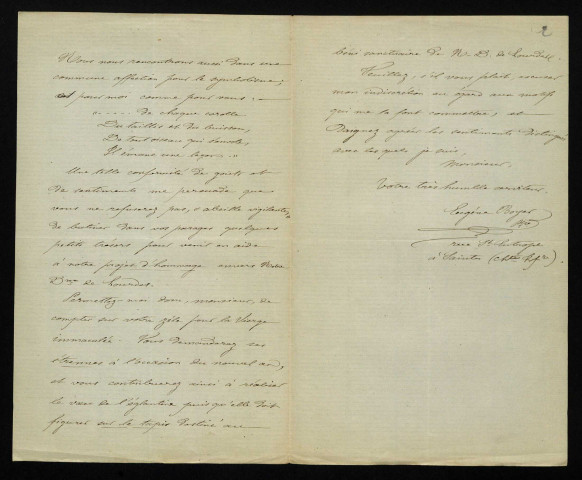 Nous nous rencontrons aussi dans une
commune affection pour le symbolisme;
car pour moi comme pour vous :
. . . . . de chaque corolle
Des taillis et du buisson,
De tout oiseau qui s'envole,
Il émane une leçon . .
Une telle conformité de goûts et
de sentiments me persuade que
vous ne refuserez pas, abeille vigilante,
de butiner dans vos parages quelques
petits trésors pour venir en aide
à notre projet d'hommage envers Notre
Dame de Lourdes.
Permettez-moi donc, monsieur, de
compter sur votre zèle pour la Vierge
immaculée. Vous demanderez ses
étrennes à l'occasion du nouvel an,
et vous contribuerez ainsi à réaliser
le vœu de l'églantine puisqu'elle doit
figurer sur le tapis destiné au
2
béni sanctuaire de N. D. de Lourdes.
Veuillez, s'il vous plaît, excuser
mon indiscrétion eu égard aux motifs
qui me la font commettre, et
Daignez agréer les sentiments distingués
avec lesquels je suis,
Monsieur,
Votre très humble serviteur.
Eugène
rue St Eutrope
à Saintes